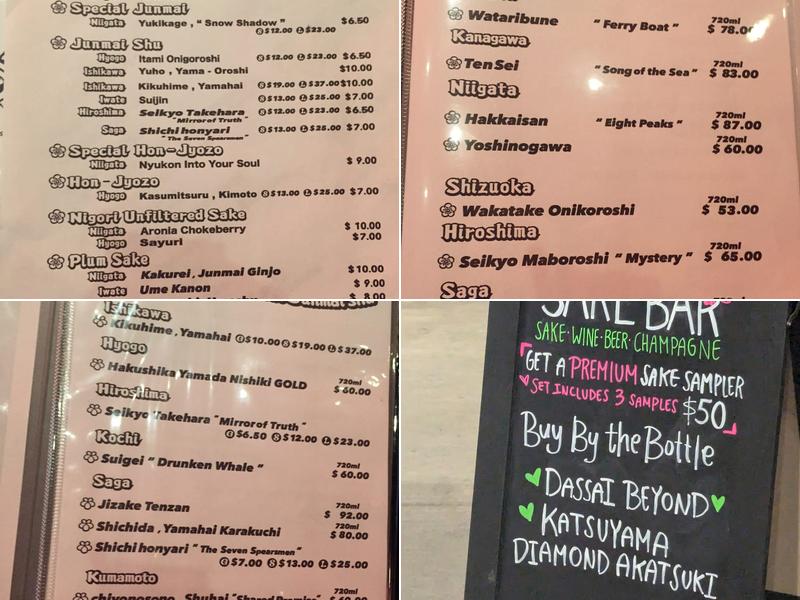 Special Junmai
Niigata Yukikage , " Snow Shadow " $6.50
Ⓢ$12.00 Ⓛ$23.00
Junmai Shu
Hyogo Itami Onigoroshi Ⓢ$12.00 Ⓛ$23.00 $6.50
Ishikawa Yuho , Yama - Oroshi $10.00
Ishikawa Kikuhime , Yamahai Ⓢ$19.00 Ⓛ$37.00 $10.00
Iwate Suijin Ⓢ$13.00 Ⓛ$25.00 $7.00
Hiroshima Seikyo Takehara Ⓢ$12.00 Ⓛ$23.00 $6.50
"Mirror of Truth"
Saga Shichi honyari Ⓢ$13.00 Ⓛ$25.00 $7.00
"The Seven Spearsmen"
Special Hon-Jyozo
Niigata Nyukon Into Your Soul $ 9.00
Hon-Jyozo
Hyogo Kasumitsuru , Kimoto Ⓢ$13.00 Ⓛ$25.00 $7.00
Nigori Unfiltered Sake
Niigata Aronia Chokeberry $ 10.00
Hyogo Sayuri $7.00
Plum Sake
Niigata Kakurei , Junmai Ginjo $10.00
Iwate Ume Kanon $ 9.00
$ 8.00
Wataribune " Ferry Boat " 720ml $ 78.00
Kanagawa
Ten Sei " Song of the Sea " 720ml $ 83.00
Niigata
Hakkaisan " Eight Peaks " 720ml $ 87.00
Yoshinogawa 720ml $ 60.00
Shizuoka
Wakatake Onikoroshi 720ml $ 53.00
Hiroshima
Seikyo Maboroshi " Mystery " 720ml $ 65.00
Saga
Junmai Shu
Ishikawa
Kikuhime , Yamahai Ⓖ$10.00 Ⓢ$19.00 Ⓛ$37.00
Hyogo
Hakushika Yamada Nishiki GOLD 720ml $ 60.00
Hiroshima
Seikyo Takehara "Mirror of Truth "
Ⓖ$6.50 Ⓢ$12.00 Ⓛ$23.00
Kochi
Suigei " Drunken Whale " 720ml $ 60.00
Saga
Jizake Tenzan 720ml $ 92.00
Shichida , Yamahai Karakuchi 720ml $ 80.00
Shichi honyari " The Seven Spearsmen "
Ⓖ$7.00 Ⓢ$13.00 Ⓛ$25.00
Kumamoto
720ml
SAKE BAR
SAKE·WINE·BEER·CHAMPAGNE
GET A PREMIUM SAKE SAMPLER
SET INCLUDES 3 SAMPLES $50
Buy By the Bottle
DASSAI BEYOND
KATSUYAMA
DIAMOND AKATSUKI